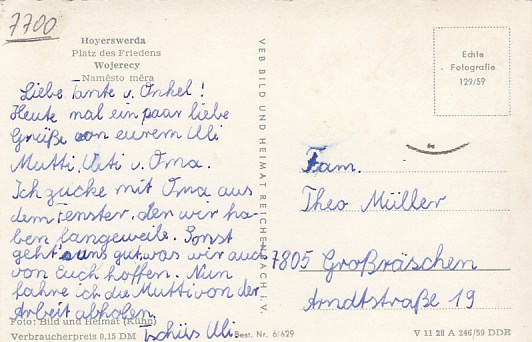 7700
Hoyerswerda
Platz des Friedens
Wojerecy
Naměsto měra
Liebe Tante u. Onkel!
Heute mal ein paar liebe
Grüße von eurem Uli
Mutti, Veti u. Oma.
Ich zucke mit Oma aus
dem Fenster, den wir ha-
ben langeweile. Sonst
geht's uns gut, was wir auch
von Euch hoffen. Nun
fahre ich die Mutti von der
Arbeit abholen.
Tschüs Uli
Foto: Bild und Heimat (Kühn)
Verbraucherpreis 0,15 DM
Best. Nr. 6/629
VEB BILD UND HEIMAT REICHENBACH I. V.
Echte
Fotografie
129/59
Fam.
Theo Müller
7805 Großräschen
Arndtstraße 19
V 11 28 A 246/59 DDR